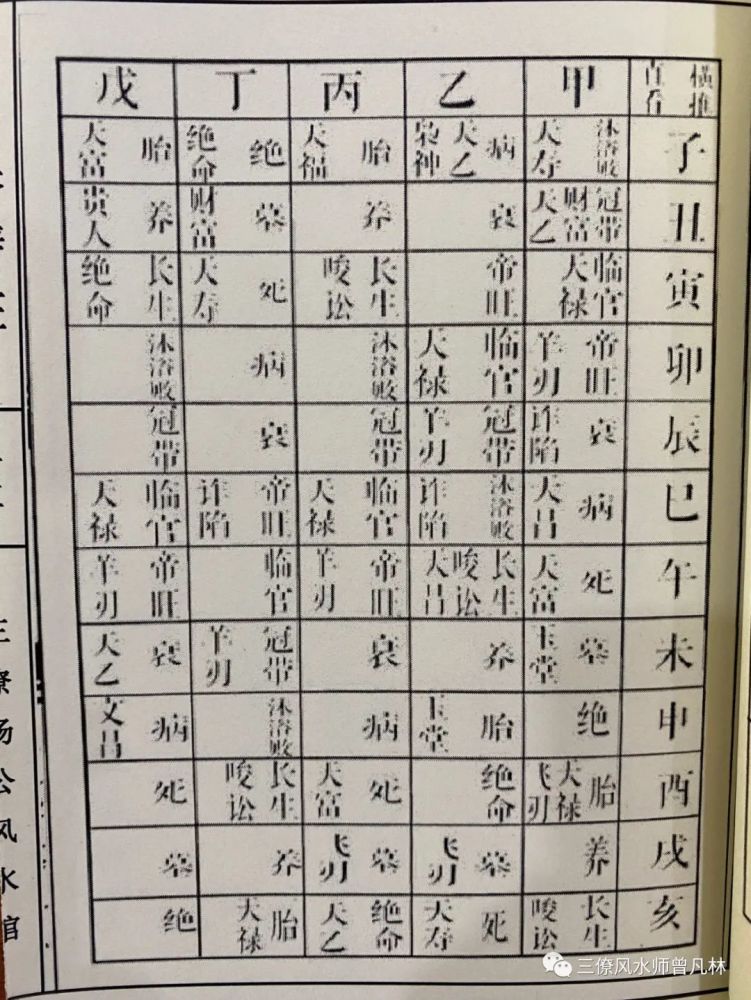 横推直看 甲 乙 丙 丁 戊
子 沐浴败 天寿 病 天乙 枭神 胎 天福 绝 绝命 胎 天富
丑 冠带 财富 天乙 衰 养 墓 财富 养 贵人
寅 临官 天禄 帝旺 长生 唆讼 死 天寿 长生 绝命
卯 帝旺 羊刃 临官 天禄 沐浴败 病 沐浴败
辰 衰 诈陷 冠带 羊刃 冠带 衰 冠带
巳 病 天昌 沐浴败 诈陷 临官 天禄 帝旺 诈陷 临官 天禄
午 死 天富 长生 唆讼 天昌 帝旺 羊刃 临官 帝旺 羊刃
未 墓 玉堂 养 衰 冠带 羊刃 衰 天乙
申 绝 胎 玉堂 病 沐浴败 病 文昌
酉 胎 天禄 飞刃 绝命 死 天富 长生 唆讼 死
戌 养 墓 飞刃 墓 飞刃 养 墓
亥 长生 唆讼 死 天寿 绝命 天乙 胎 天禄 绝
三僚杨公风水馆
三僚风水师曾凡林